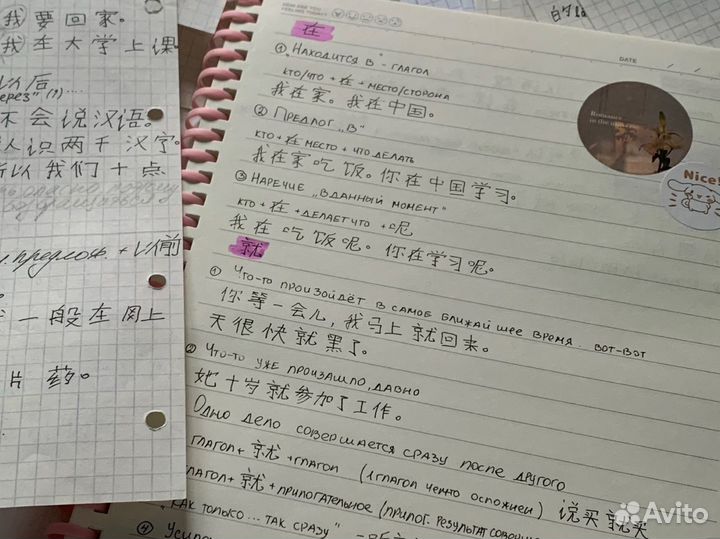 我要回家。
我在大学上课
以后
через" (?)....
不会说汉语。
认识两千汉字。
所以我们十点
предлож. + 以前
一般在网上
片药。
HOW ARE YOU
FEELING TODAY?
DATE
在
① Находится в - глагол
кто/что + 在 + место/сторона
我在家。我在中国。
② Предлог „в"
кто + 在 место + что делать
我在家吃饭。你在中国学习。
③ Наречие „в данный момент"
кто + 在 + делает что + 呢
我在吃饭呢。你在学习呢。
就
① Что-то произойдёт в самое ближайшее время. вот-вот
你等一会儿, 我马上就回来。
天很快就黑了。
② Что-то уже произашло, давно
她十岁就参加了工作。
Одно дело совершается сразу после другого
глагол + 就 + глагол (1 глагол чемто осложнен) 说买就买
глагол + 就 + прилогательное (прилог. результат
„как только... так сразу"
④
Romance
Nice!
Avito